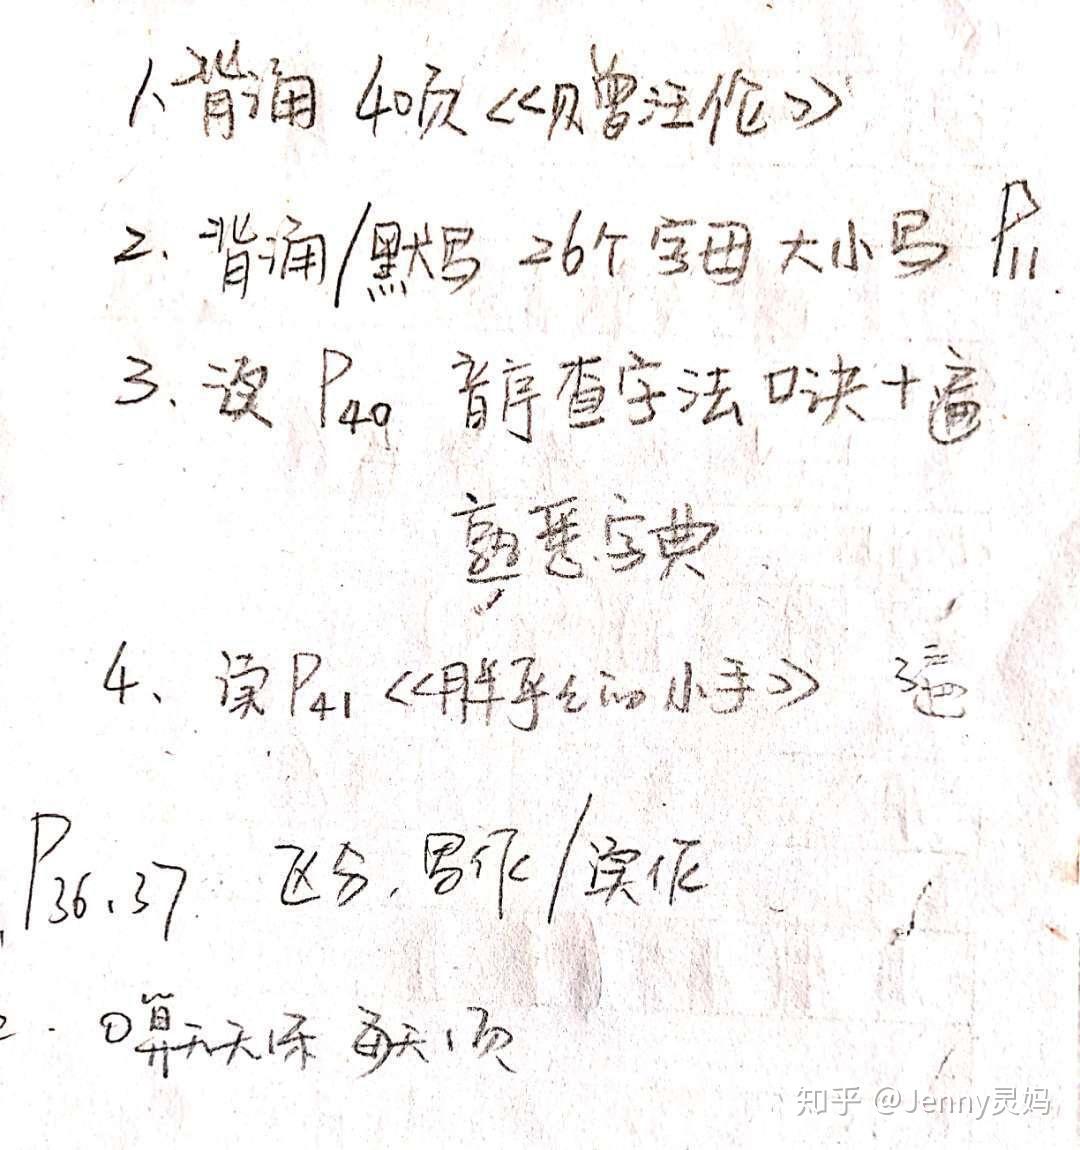 1、背诵 40页《赠汪伦》
2、背诵/默写 26个字母大小写 P111
3、读 P40 音序查字法口诀十遍
熟悉字典
4、读P41《胖乎乎的小手》3遍
P36、37 写作/
2. 口算天天练 每天1页
知乎 @Jenny灵妈